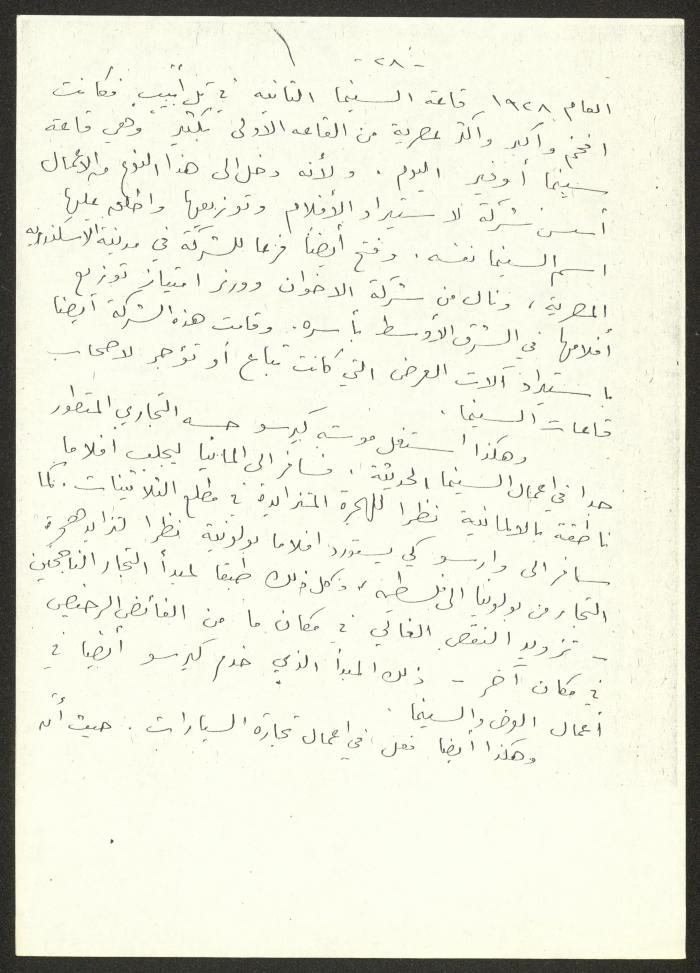 - ٢٨ -
العام ١٩٢٨ قاعة السينما الثانية في تل أبيب. فكانت
افخم وأكبر واكثر عصرية من القاعة الاولى بكثير وهي قاعة
سينما أوفير اليوم. ولأنه دخل الى هذا النوع من الأعمال
أسس شركة لاستيراد الأفلام وتوزيعها واطلق عليها
اسم السينما نفسه. وفتح أيضا فرعا للشركة في مدينة الاسكندرية
المصرية، ونال من شركة الاخوان وورنر امتياز توزيع
أفلامها في الشرق الأوسط بأسره. وقامت هذه الشركة أيضا
باستيراد آلات العرض التي كانت تباع أو تؤجر لاصحاب
قاعات السينما.
وهكذا استغل موشيه كيرسو حسه التجاري المتطور
جدا في اعمال السينما الحديثة. فسافر الى المانيا ليجلب افلاما
ناطقة بالالمانية نظرا للهجرة المتزايدة في مطلع الثلاثينات. كما
سافر الى وارسو كي يستورد افلاما بولونية نظرا لتزايد هجرة
التجار من بولونيا الى فلسطين، وكل ذلك طبقا لمبدأ التجار الناجحين
- تزويد النقص الغالي في مكان ما من الفائض الرخيص
في مكان آخر - ذلك المبدأ الذي خدم كيرسو أيضا في
أعمال العرض والسينما.
وهكذا أيضا فعل في اعمال تجارة السيارات. حيث أنه